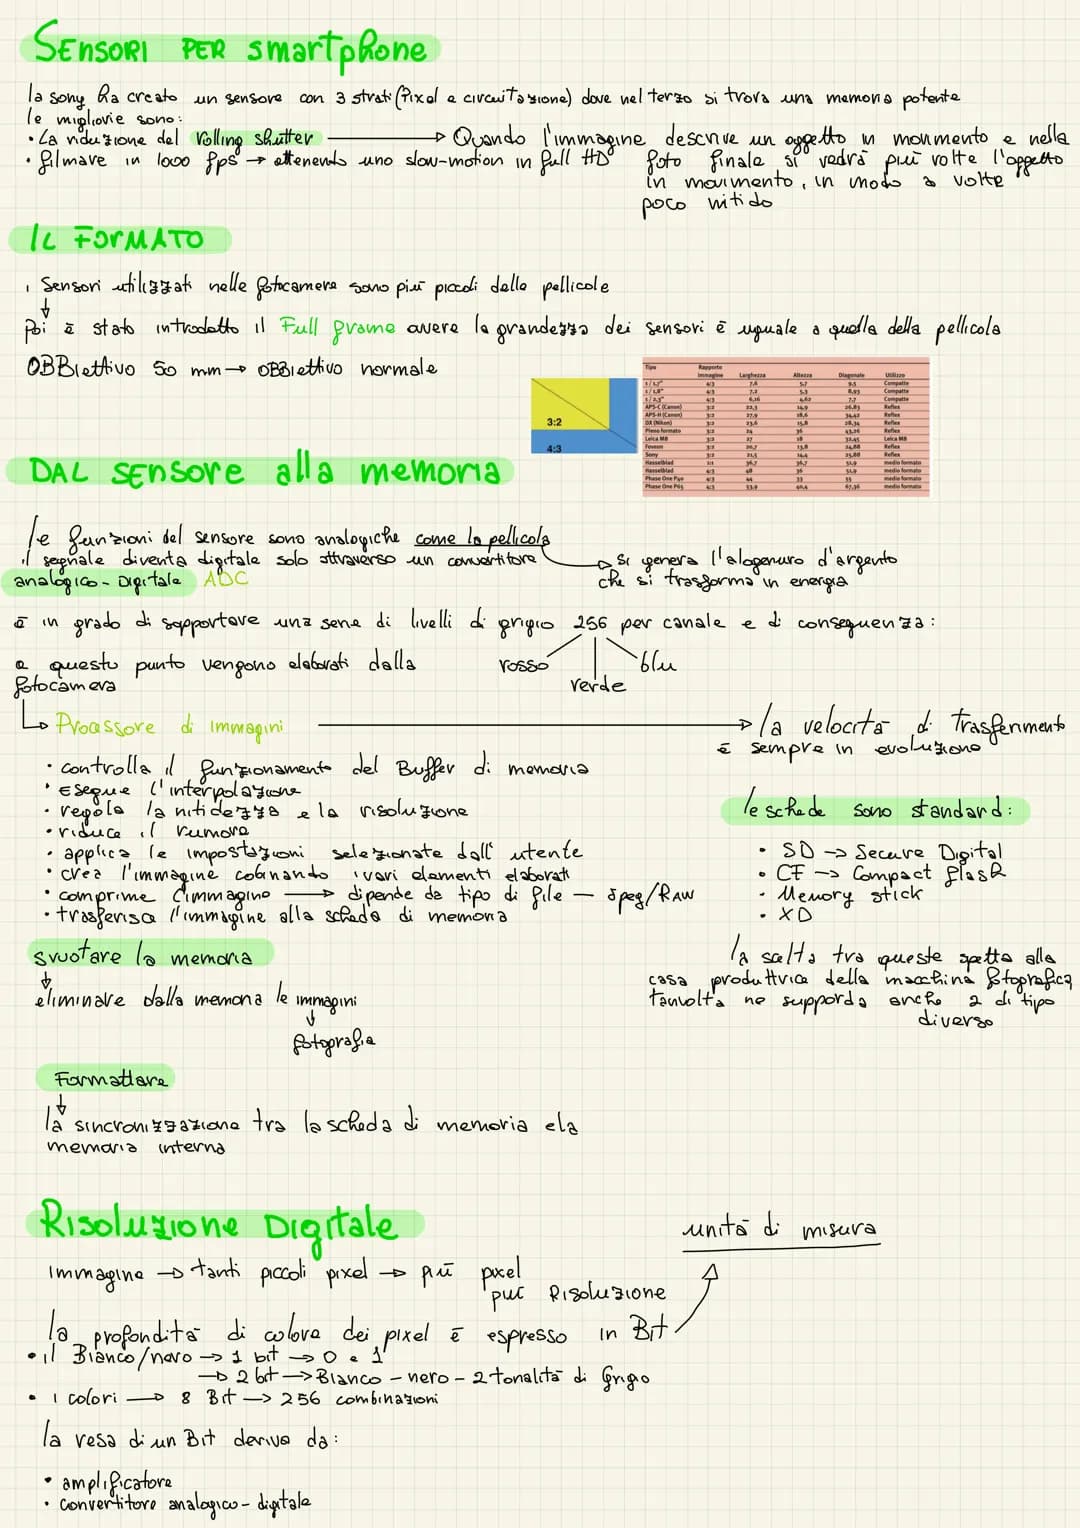 SENSORI PER smartphone
la sony ha creato un sensore con 3 strati (Pixel e circuitazione) dove nel terzo si trova una memoria potente
le migliorie sono:
• La riduzione del rolling shutter → Quando l'immagine descrive un oggetto in movimento e nella
foto finale si vedrà più volte l'oggetto
in movimento, in modo a volte
poco nitido
• filmare in 1000 fps → ottenendo uno slow-motion in full HD
IL FORMATO
i Sensori utilizzati nelle fotocamere sono più piccoli delle pellicole
↓
Poi è stato introdotto il Full frame avere la grandezza dei sensori è uguale a quella della pellicola
OBBiettivo 50 mm → OBBiettivo normale
3:2
4:3
Tipo Rapporto immagine Larghezza Altezza Diagonale Utilizzo
1/1,7" 4:3 7,6 5,7 9,5 Compatte
1/1,8" 4:3 7,2 5,3 8,93 Compatte
1/2,3" 4:3 6,16 4,62 7,7 Compatte
APS-C (Canon) 3:2 22,3 14,9 26,83 Reflex
APS-H (Canon) 3:2 27,9 18,6 34,42 Reflex
DX (Nikon) 3:2 23,6 15,8 28,34 Reflex
Pieno formato 3:2 24 36 43,26 Reflex
Leica M8 3:2 27 18 32,45 Leica M8
Foveon 3:2 20,7 13,8 24,88 Reflex
Sony 3:2 21,5 14,4 25,88 Reflex
Hasselblad 1:1 36,7 36,7 51,9 medio formato
Hasselblad 4:3 48 36 medio formato
Phase One 4:3 44 33 55 medio formato
Phase One P65 4:3 53,9 40,4 67,36 medio formato
DAL SENSORE alla memoria
le funzioni del sensore sono analogiche come la pellicola
il segnale diventa digitale solo attraverso un convertitore
analogico - Digitale ADC
→ si genera l'alogenuro d'argento
che si trasforma in energia
è in grado di sopportare una serie di livelli di grigio 256 per canale e di conseguenza:
rosso verde blu
a questo punto vengono elaborati dalla
fotocamera
↳ Processore di immagini → la velocità di trasferimento
è sempre in evoluzione
• controlla il funzionamento del Buffer di memoria
• Esegue l'interpolazione
• regola la nitidezza e la risoluzione
• riduce il rumore
• applica le impostazioni selezionate dall'utente
• crea l'immagine combinando i vari elementi elaborati
• comprime l'immagine → dipende da tipo di file — Jpeg/RAW
• trasferisce l'immagine alla scheda di memoria
le schede sono standard:
• SD → Secure Digital
• CF → Compact flash
• Memory stick
• XD
la scelta tra queste spetta alla
casa produttrice della macchina fotografica
talvolta ne supporda anche 2 di tipo
diverso
svuotare la memoria
↓
eliminare dalla memoria le immagini
↓
fotografie
Formattare
↓
la sincronizzazione tra la scheda di memoria e la
memoria interna
Risoluzione Digitale
immagine → tanti piccoli pixel → più pixel
più Risoluzione
unità di misura
la profondità di colore dei pixel è espresso in Bit
• il Bianco/nero → 1 bit → 0 e 1
→ 2 bit → Bianco - nero - 2 tonalità di Grigio
• i colori → 8 Bit → 256 combinazioni
la resa di un Bit deriva da:
• amplificatore
• convertitore analogico - digitale